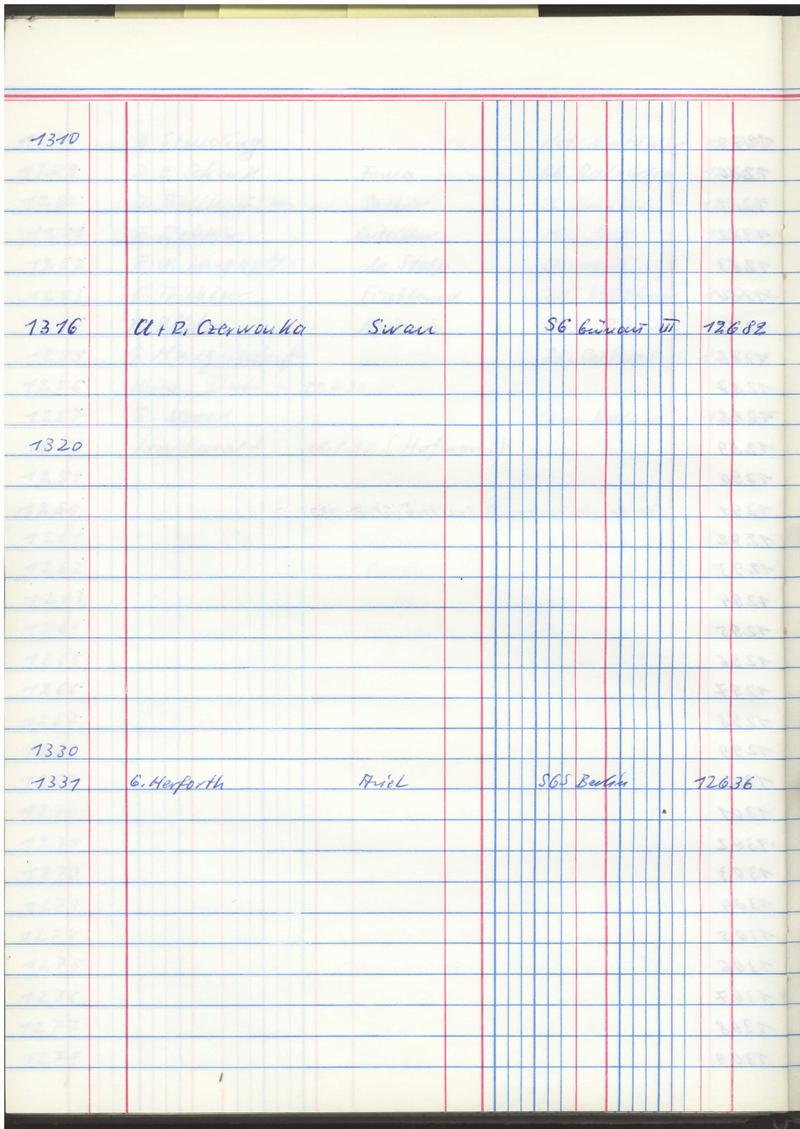 1310
1316 U + R, Czerwonka Swan SG Grünau III 12682
1320
1330
1331 G. Herforth Ariel SGS Berlin 12636